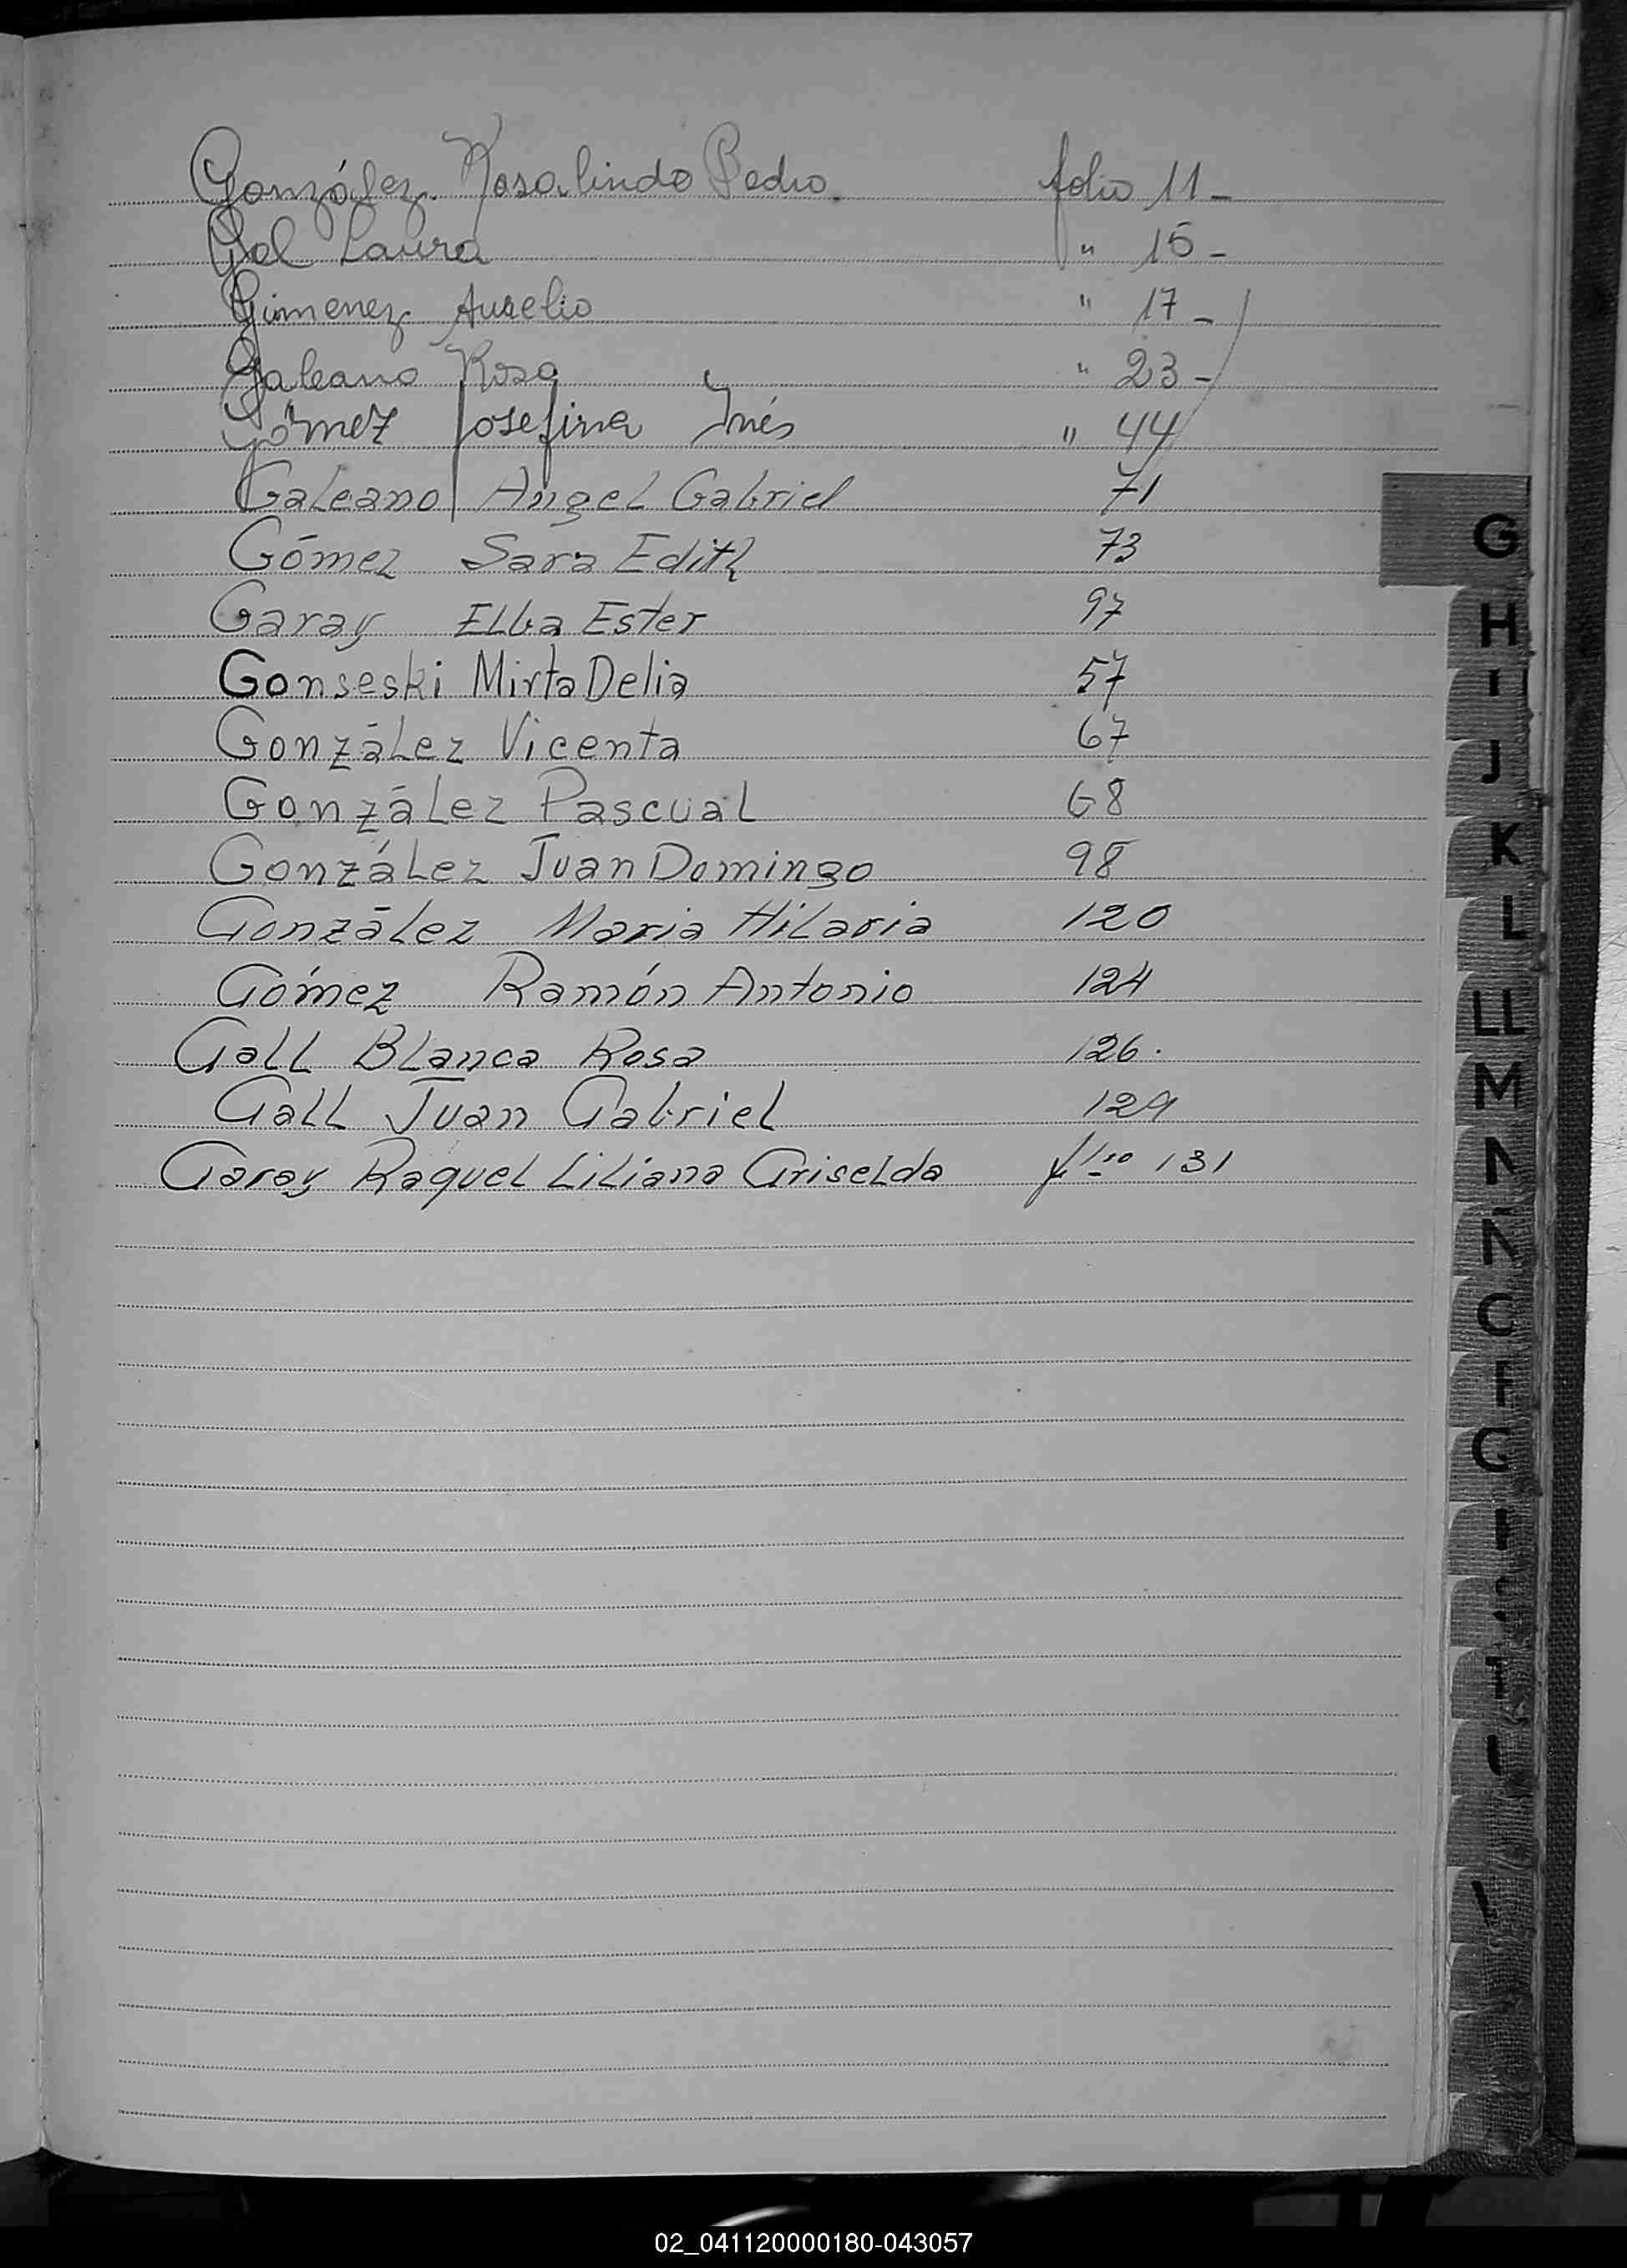 González Rosalindo Pedro folio 11-
Gal Laura " 15-
Gimenez Aurelio " 17-
Galeano Rosa " 23-
Gómez Josefina Inés " 44
Galeano Angel Gabriel 71
Gómez Sara Edith 73
Garay Elba Ester 97
Gonseski Mirta Delia 57
González Vicenta 67
González Pascual 68
González Juan Domingo 98
González Maria Hilaria 120
Gómez Ramón Antonio 124
Gall Blanca Rosa 126.
Gall Juan Gabriel 129
Garay Raquel Liliana Griselda 131
G
H
I
J
K
L
LL
M
N
02_041120000180-043057